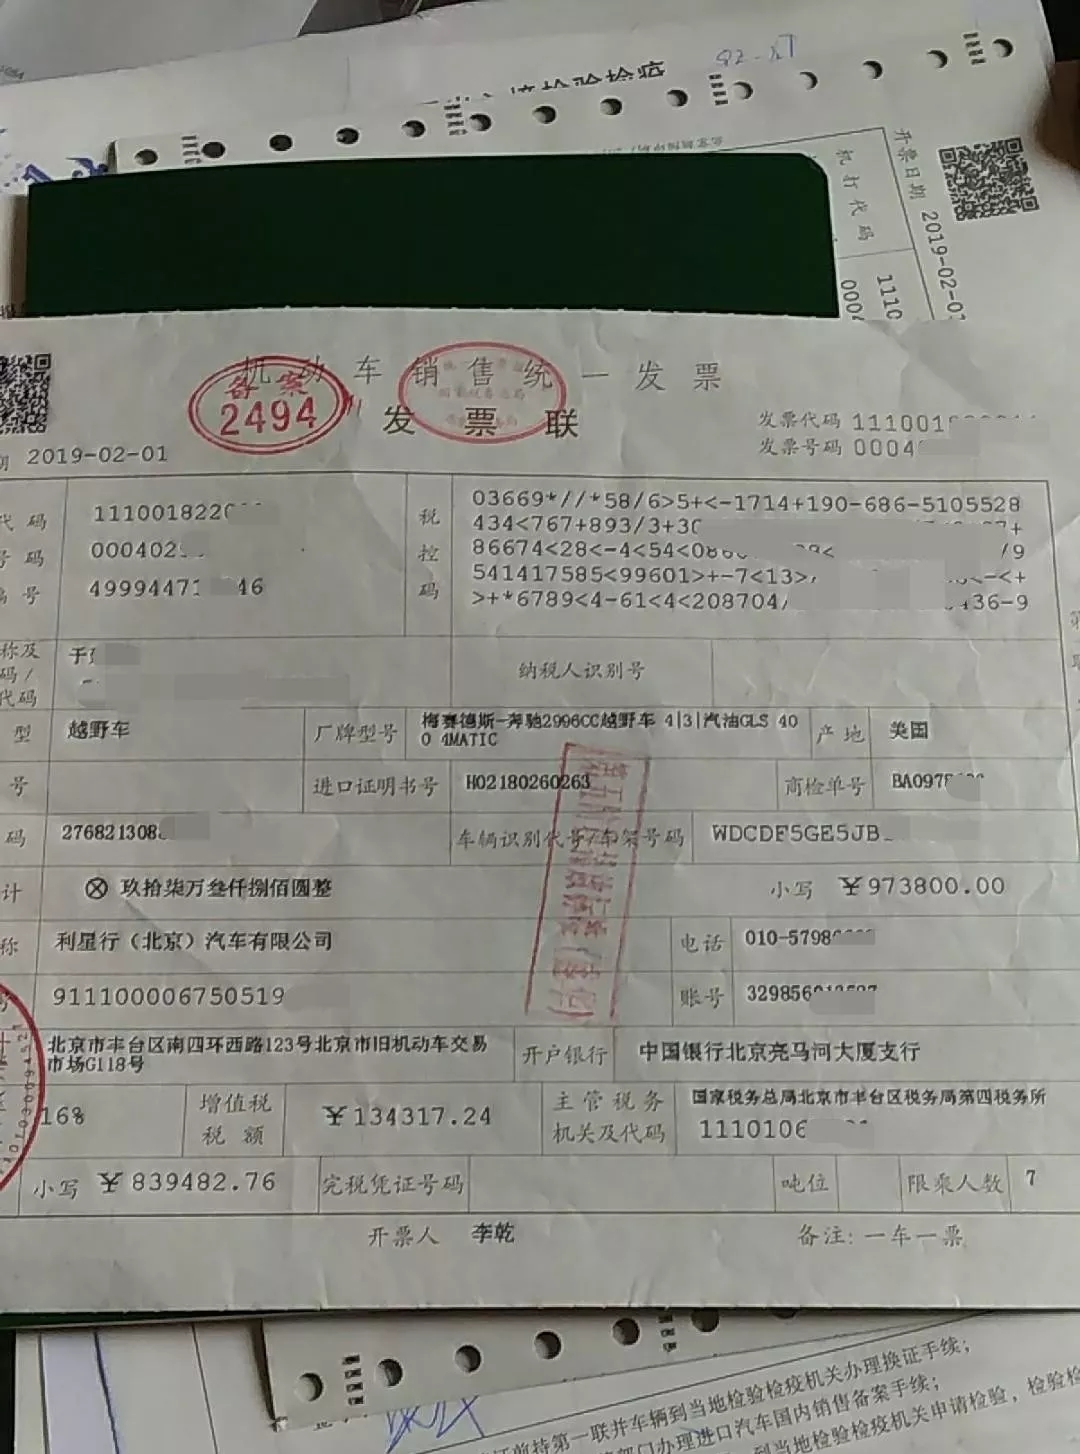 检验检疫
开票日期 2019-02-01
机打代码
1110
000
机动车销售统一发票
备案
2494
发票联
发票代码 111001
发票号码 0004
2019-02-01
代码
111001822
号码
00040
编号
49994471 46
税控码
03669*//*58/6>5+<-1714+190-686-5105528
434<767+893/3+3
86674<28<-4<54<08 /9
541417585<99601>+-7<13> <-<+
>+*6789<4-61<4<208704/ 436-9
称及
码/
代码
于
纳税人识别号
型
越野车
厂牌型号
梅赛德斯-奔驰2996CC越野车 4|3|汽油GLS 40
0 4MATIC
产地
美国
号
进口证明书号
H02180260263
商检单号
BA097
码
27682130
车辆识别代号/车架号码
WDCDF5GE5JB
计
ⓧ 玖拾柒万叁仟捌佰圆整
小写 ¥973800.00
称
利星行（北京）汽车有限公司
电话
010-5798
号
911100006750519
账号
329856
北京市丰台区南四环西路123号北京市旧机动车交易
市场G118号
开户银行
中国银行北京亮马河大厦支行
16%
增值税
税额
¥134317.24
主管税务
机关及代码
国家税务总局北京市丰台区税务局第四税务所
1110106
小写 ¥839482.76
完税凭证号码
吨位
限乘人数
7
开票人 李乾
备注:一车一票
第一联并车辆到当地检验检疫机关办理换证手续；
办理进口汽车国内销售备案手续；
到当地检验检疫机关申请检验，检验检